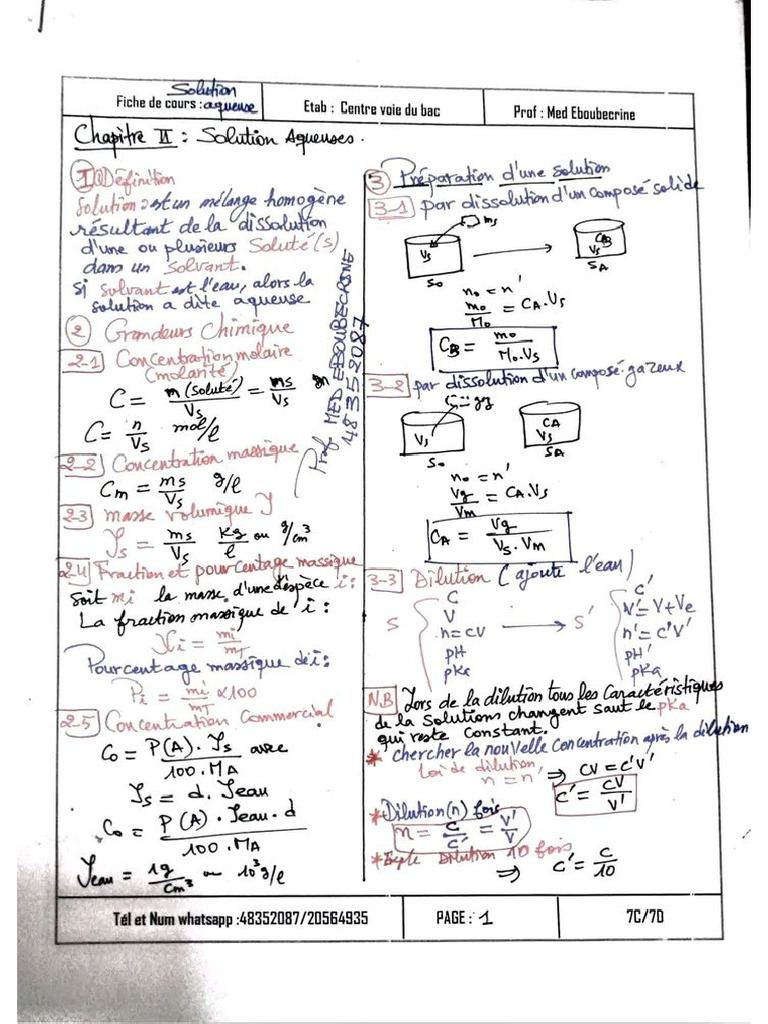 Fiche de cours : Solution aqueuse
Etab : Centre voie du bac
Prof : Med Eboubecrine
Chapitre II : Solution Aqueuses.
1 Définition
Solution : est un mélange homogène
résultant de la dissolution
d'une ou plusieurs Soluté(s)
dans un Solvant.
Si solvant est l'eau, alors la
solution a dite aqueuse
2 Grandeurs Chimique
2-1 Concentration molaire
(molarité)
C = n(soluté)/Vs = ms/Vs
C = n/Vs mol/l
2-2 Concentration massique
Cm = ms/Vs g/l
2-3 masse volumique ρ
ρs = ms/Vs kg/l ou g/cm³
2-4 Fraction et pourcentage massique
Soit mi la masse d'une espèce i :
La fraction massique de i :
Xi = mi/mT
Pourcentage massique de i :
Pi = mi/mT x 100
2-5 Concentration Commercial
C₀ = P(A) . ρs / 100 . MA avec
ρs = d . ρeau
C₀ = P(A) . ρeau . d / 100 . MA
ρeau = 1g/cm³ ou 10³ g/l
Prof MED EBOUBECRINE
48352087
3 Préparation d'une solution
3-1 par dissolution d'un composé solide
ms
Vs
S₀
CB
Vs
SA
n₀ = n'
m₀/M₀ = CA.Vs
CB = m₀/M₀.Vs
3-2 par dissolution d'un composé gazeux
Vs
S₀
CA
Vs
SA
n₀ = n'
Vg/Vm = CA.Vs
CA = Vg/Vs.Vm
3-3 Dilution (ajoute l'eau)
S
C
V
n=cV
pH
pKa
S'
C'
V'=V+Ve
n'=c'V'
pH'
pKa
NB Lors de la dilution tous les Caractéristiques
de la Solutions changent saut le pKa
qui reste Constant.
* chercher la nouvelle concentration après la dilution
loi de dilution
n = n' ⇒ CV = C'V'
C' = CV/V'
* Dilution (n) fois
n = C/C' = V'/V
* Exple Dilution 10 fois
⇒ C' = C/10
Tél et Num whatsapp :48352087/20564935
PAGE : 1
7C/7D